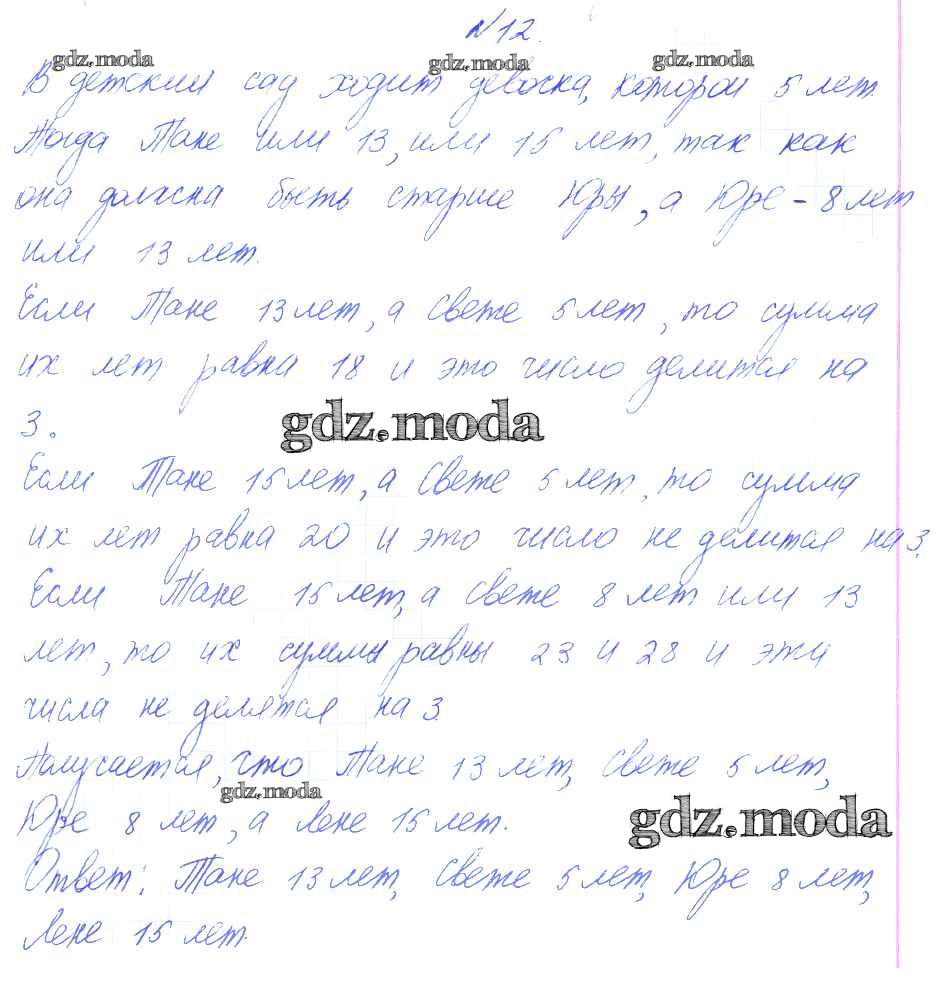 №12.
gdz.moda gdz.moda gdz.moda
В детский сад ходит девочка, которой 5 лет.
Тогда Тане или 13, или 15 лет, так как
она должна быть старше Юры, а Юре - 8 лет
или 13 лет.
Если Тане 13 лет, а Свете 5 лет, то сумма
их лет равна 18 и это число делится на
3.
gdz.moda
Если Тане 15 лет, а Свете 5 лет, то сумма
их лет равна 20 и это число не делится на 3.
Если Тане 15 лет, а Свете 8 лет или 13
лет, то их суммы равны 23 и 28 и эти
числа не делятся на 3.
Получается, что Тане 13 лет, Свете 5 лет,
gdz.moda
Юре 8 лет, а Лене 15 лет.
gdz.moda
Ответ: Тане 13 лет, Свете 5 лет, Юре 8 лет,
Лене 15 лет.